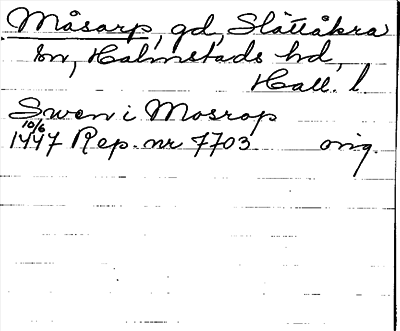 Måsarp, gd, Slättåkra
sn, Halmstads hd,
Hall. l.
Swen i Mosrop
10/6
1447 Rep. nr 7703 orig.